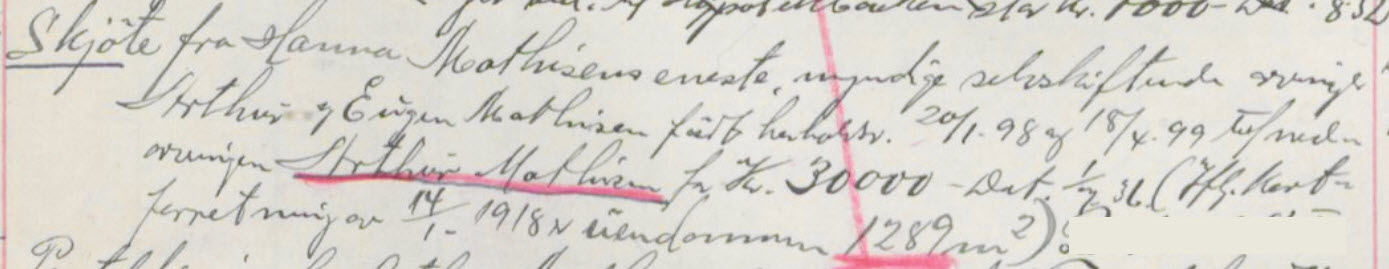 Kr. 1000-
Skjöte fra Hanna Mathisens eneste, myndige selvskiftende arvinger
Arthur og Eugen Mathisen födt henholdsv. 20/1. 98 og 18/4. 99 til
arvingen Arthur Mathisen for Kr. 30000 - Dat. 36 (Ifg. kart-
forretning av 14/1. 1918 er eiendommen 1289 m²)